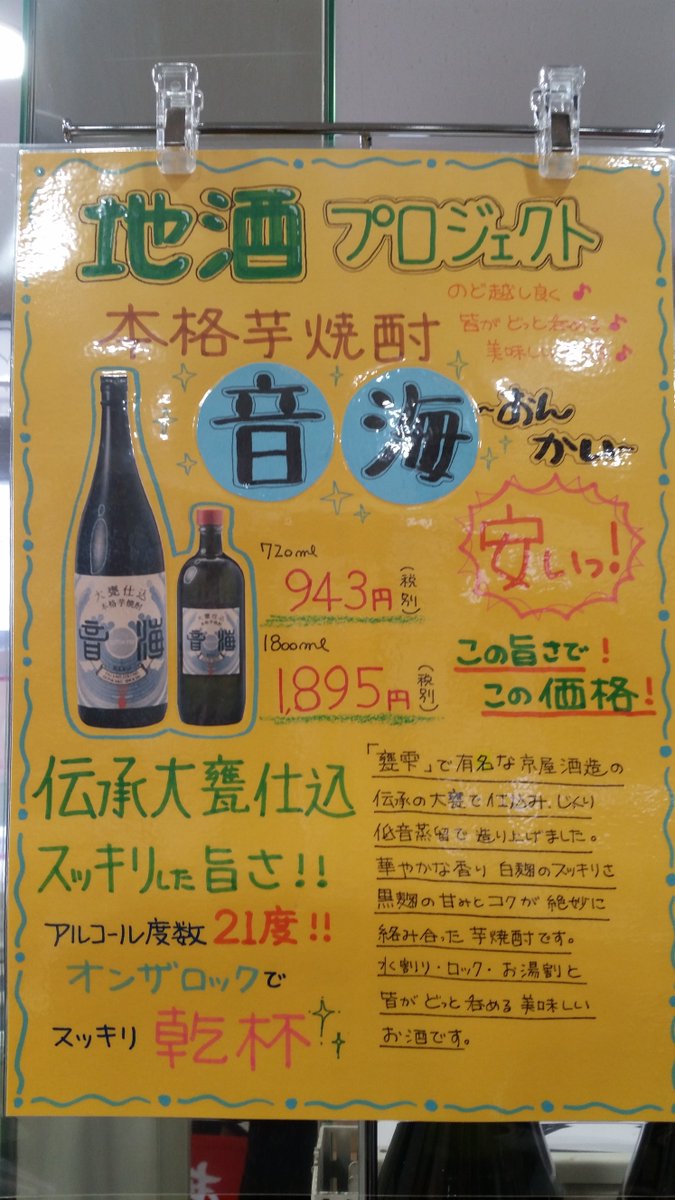 地酒 プロジェクト
のど越し良く♪
皆がどっと呑める♪
美味しい♪
本格芋焼酎
音海
～おん
かい～
大甕仕込
本格芋焼酎
音海
大甕仕込
本格芋焼酎
音海
720ml
943円(税別)
1800ml
1,895円(税別)
安いっ!
この旨さで!
この価格!
伝承大甕仕込
スッキリした旨さ!!
アルコール度数21度!!
オンザロックで
スッキリ乾杯
「甕雫」で有名な京屋酒造の
伝承の大甕で仕込み、じっくり
低音蒸留で造り上げました。
華やかな香り 白麹のスッキリさ
黒麹の甘みとコクが絶妙に
絡み合った芋焼酎です。
水割り・ロック・お湯割と
皆がどっと呑める美味しい
お酒です。